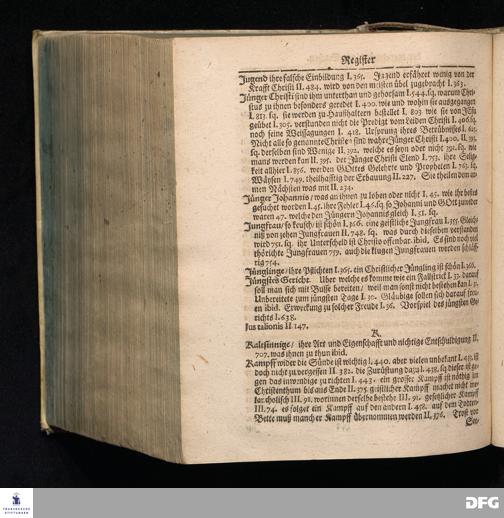 Register
Jugend ihre falsche Einbildung I. 365. Jugend erfähret wenig von der
Krafft Christi II. 484. wird von den meisten übel zugebracht I. 363.
Jünger Christi sind ihm unterthan und gehorsam I. 544. sq. warum Chri-
stus zu ihnen besonders geredet I. 400. wie und wohin sie ausgegangen
I. 813 sq. sie werden zu Haußhaltern bestellet I. 803 wie sie von JEsu
geübet I. 305. verstanden nicht die Predigt vom Leiden Christi I. 406. sq.
noch seine Weissagungen I. 418. Ursprung ihres Betrübnisses I. 615.
Nicht alle so genannte Christen sind wahre Jünger Christi I. 400. II. 391.
sq. derselben sind Wenige II. 392. welche es seyn oder nicht 391. sq. nie-
mans werden kan II. 395. der Jünger Christi Elend I. 753. ihre Selig-
keit allhier I. 856. werden GOttes Gelehrte und Propheten I. 763. sq.
Wäysen I. 749. theilhafftig der Erbauung II. 227. Sie theilen dem ar-
men Nächsten was mit II. 234.
Jünger Johannis / was an ihnen zu loben oder nicht I. 45. wie ihr bestes
gesucht worden I. 45. ihre Fehler I. 46. sq. so Johanni und GOtt zuwider
waren 47. welche den Jüngern Johannis gleich I. 51. sq.
Jungfrau / so keusch / ist schön I. 366. eine geistliche Jungfrau I. 355. Gleich-
niß von zehen Jungfrauen II. 748. sq. was durch dieselben verstanden
wird 751. sq. ihr Unterscheid ist Christo offenbar. ibid. Es sind noch viel
thörichte Jungfrauen 753. auch die klugen Jungfrauen werden schläff-
rig 754.
Jünglinge / ihre Pflichten I. 365. ein Christlicher Jüngling ist schön I. 366.
Jüngstes Gericht. Uber welche es komme wie ein Fallstrick I. 33. darauf
soll man sich mit Busse bereiten / weil man sonst nicht bestehen kan I. 31.
Unbereitete zum jüngsten Tage I. 30. Gläubige sollen sich darauf freu-
en ibid. Erweckung zu solcher Freude I. 36. Vorspiel des jüngsten Ge-
richts I. 638.
Jus talionis II 147.
K.
Kaltsinnige / ihre Art und Eigenschafft und nichtige Entschuldigung II.
707. was ihnen zu thun ibid.
Kampff wider die Sünde ist wichtig I. 440. aber vielen unbekant I. 438. ist
doch nicht zu vergessen II. 382. die Zurüstung dazu I. 438. sq dieser ist ge-
gen das inwendige zu richten I. 443. ein grosser Kampff ist nöthig im
Christenthum bis ans Ende II. 375. geistlicher Kampff machet nicht me-
lancholisch III. 91. worinnen derselbe bestehe III. 91. gesetzlicher Kampff
III. 74. es folget ein Kampff auf den andern I. 458. auf dem Todten-
Bette muß mancher Kampff übernommen werden II. 376. Trost vor
See-
FRANCKESCHE
STIFTUNGEN
DFG